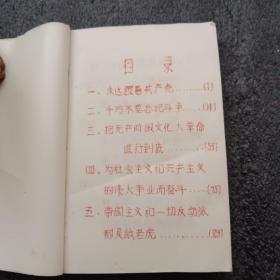 目录
一、永远跟着共产党……(1)
二、千万不要忘记斗争…(11)
三、把无产阶级文化大革命
进行到底………
四、为社会主义和共产主义
的伟大事业而奋斗…
五、帝国主义和一切反动派
都是纸老虎………(129)